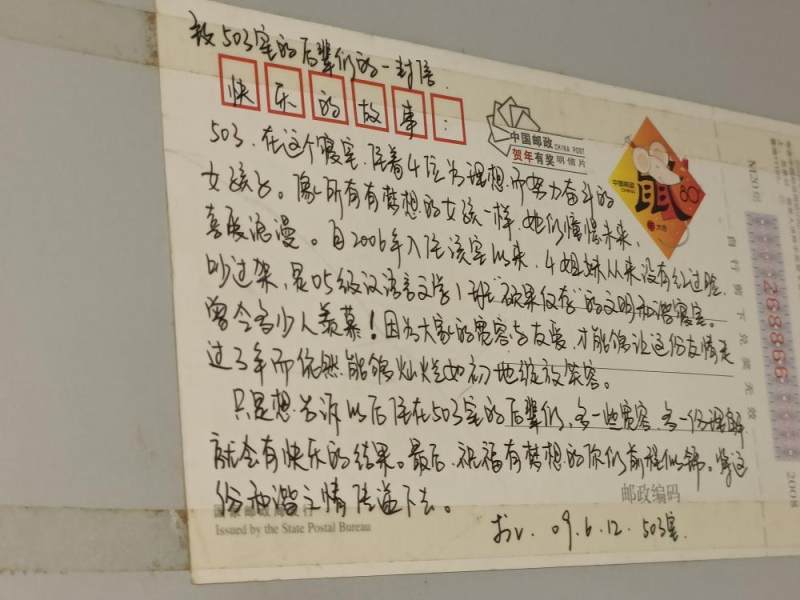 致503室的后辈们的一封信.
快乐的故事:
503. 在这个寝室, 住着4位为理想而努力奋斗的
女孩子。像所有有梦想的女孩一样, 她们憧憬未来、
喜爱浪漫。自2006年入住该室以来, 4姐妹从来没有红过脸.
吵过架, 是05级汉语言文学1班"硕果仅存"的文明和谐寝室。
曾令多少人羡慕! 因为大家的宽容与友爱, 才能够让这份友情走
过3年而依然能够灿烂如初地绽放笑容。
只是想告诉以后住在503室的后辈们, 多一些宽容, 多一份理解
就会有快乐的结果。最后, 祝福有梦想的你们前程似锦。将这
份和谐之情传递下去。
于 09.6.12. 503室.
中国邮政 CHINA POST
贺年有奖明信片
中国邮政
CHINA
鼠
80
邮政编码
国家邮政局发行
Issued by the State Postal Bureau
自行剪下兑奖无效
268866
2008